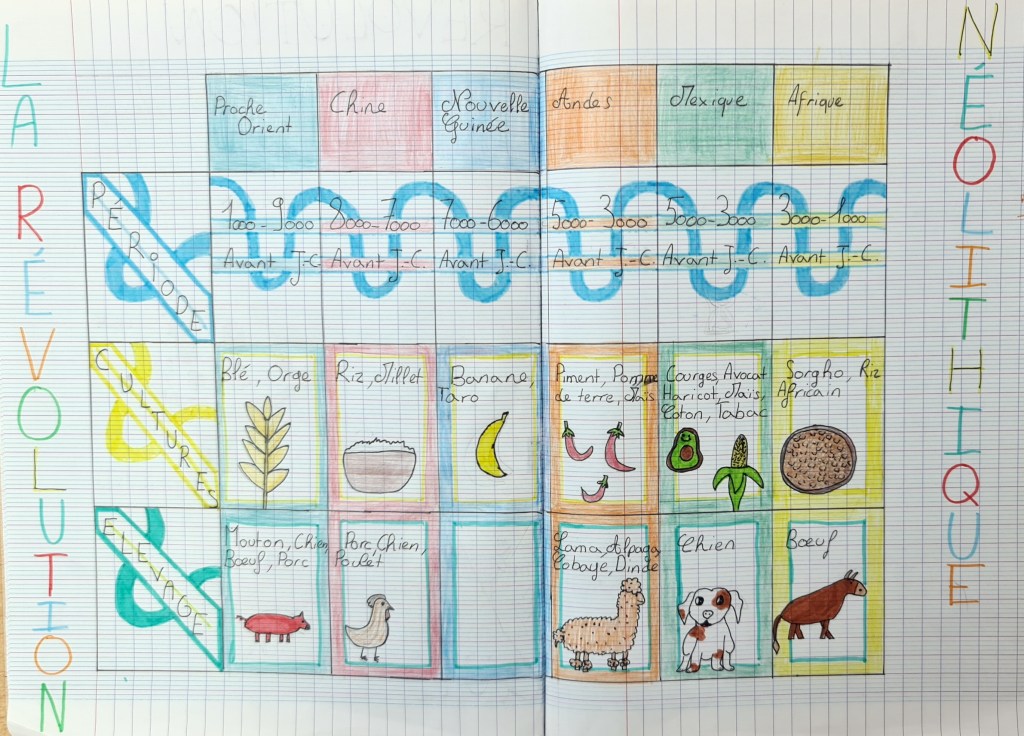 LA RÉVOLUTION
NÉOLITHIQUE
Proche
Orient
Chine
Nouvelle
Guinée
Andes
Mexique
Afrique
PÉRIODE
1000-9000
Avant J-C
8000-7000
Avant J.-C.
7000-6000
Avant J.-C.
5000-3000
Avant J.-C.
5000-3000
Avant J.-C.
3000-1000
Avant J.-C.
CULTURES
Blé, Orge
Riz, Millet
Banane,
Taro
Piment, Pomme
de terre, Maïs
Courges, Avocat
Haricot, Maïs,
Coton, Tabac
Sorgho, Riz
Africain
ELEVAGE
Mouton, Chien,
Bœuf, Porc
Porc, Chien,
Poulet
Lama, Alpaga,
Cobaye, Dinde
Chien
Bœuf